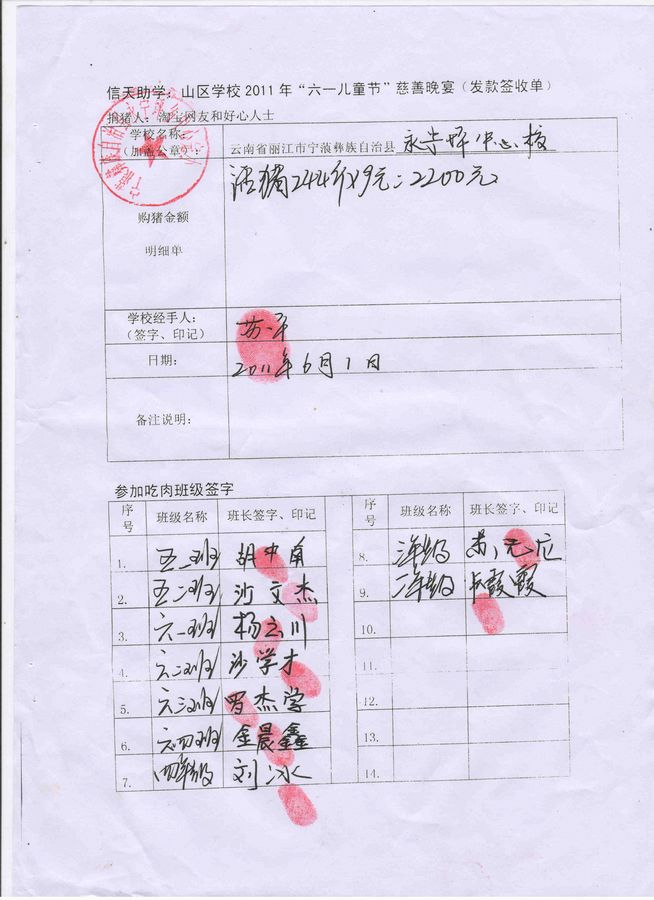 信天助学：山区学校2011年“六一儿童节”慈善晚宴（发款签收单）
捐猪人：淘宝网友和好心人士
学校名称：
（加盖公章）：
云南省丽江市宁蒗彝族自治县 永宁坪中心校
活猪244斤×9元=2200元
购猪金额
明细单
学校经手人：
（签字、印记）
苏平
日期： 2011年6月1日
备注说明：
参加吃肉班级签字
序号 班级名称 班长签字、印记 序号 班级名称 班长签字、印记
1. 五一班 胡中南 8. 三年级
2. 五二班 沙文杰 9. 二年级
3. 六一班 杨云川 10.
4. 六二班 沙学才 11.
5. 六三班 罗杰学 12.
6. 六四班 金晨鑫 13.
7. 四年级 刘冰 14.